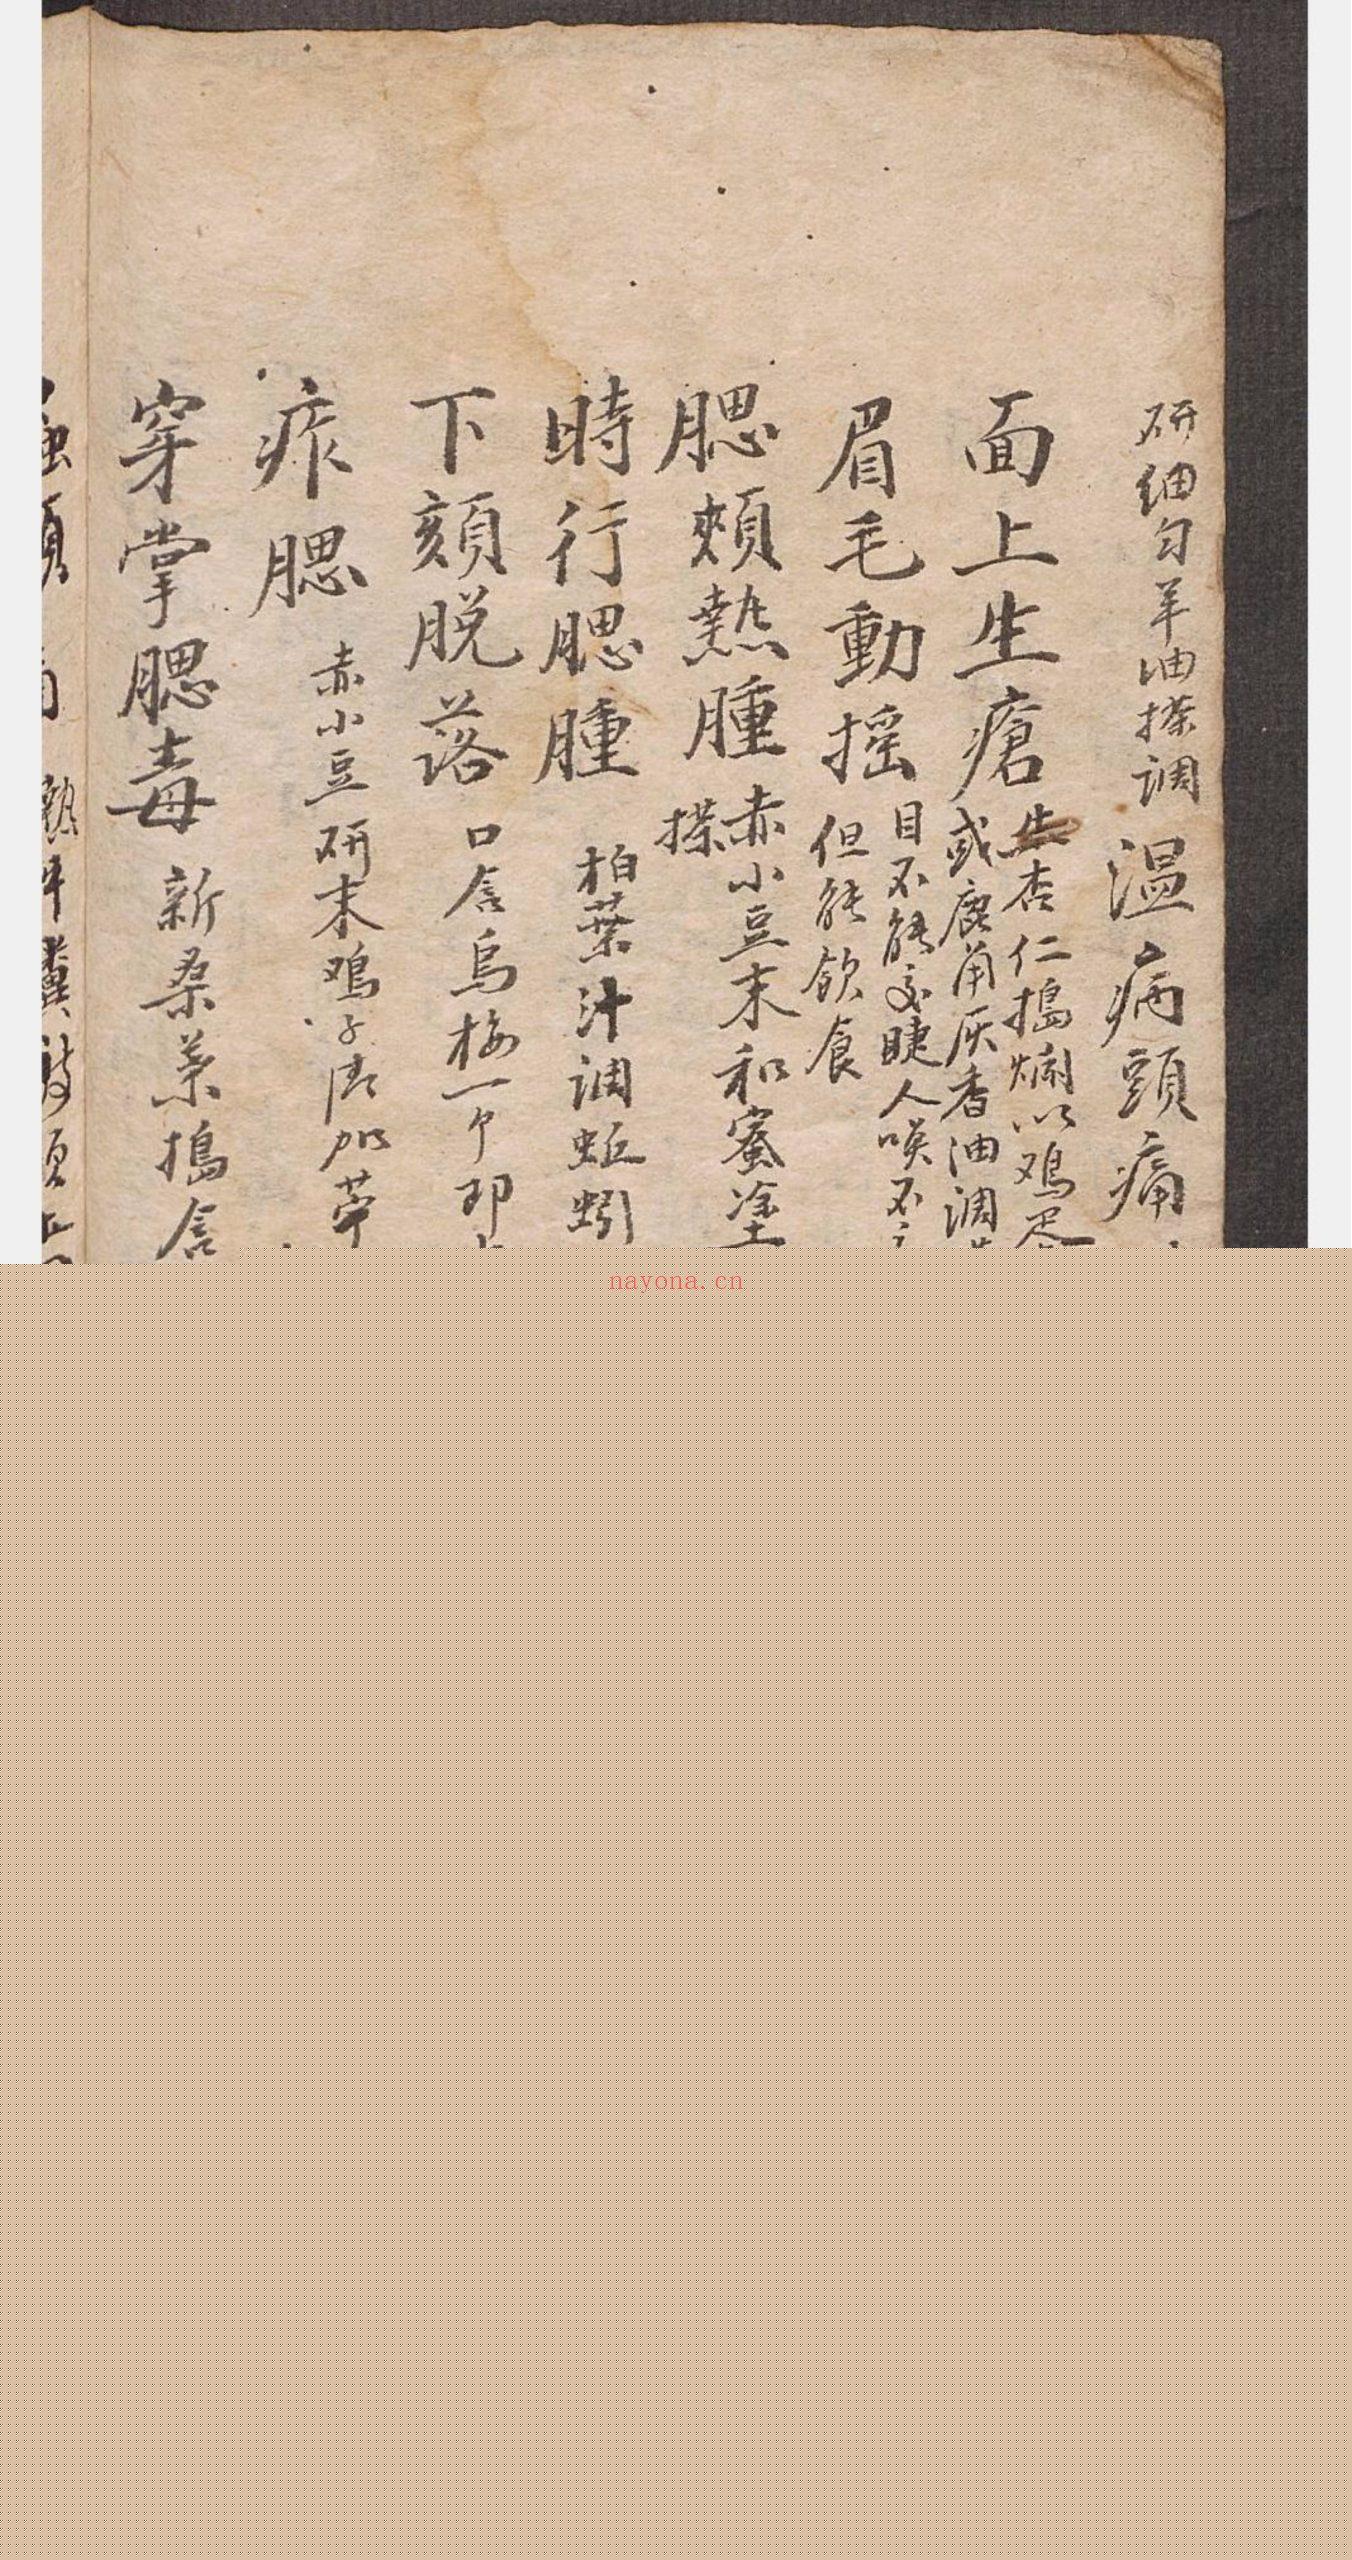 研细匀羊油搽调 溫病頭痛
面上生瘡 生杏仁搗爛以鸡蛋
或鹿角灰香油調
眉毛動摇 目不能交睫人唤不
但能飲食
腮頰熱腫 赤小豆末和蜜塗
搽
時行腮腫 柏葉汁调蚯蚓
下頦脱落 口含烏梅一个即
痄腮 赤小豆研末鸡子清加
穿掌腮毒 新桑葉搗含
nayona.cn